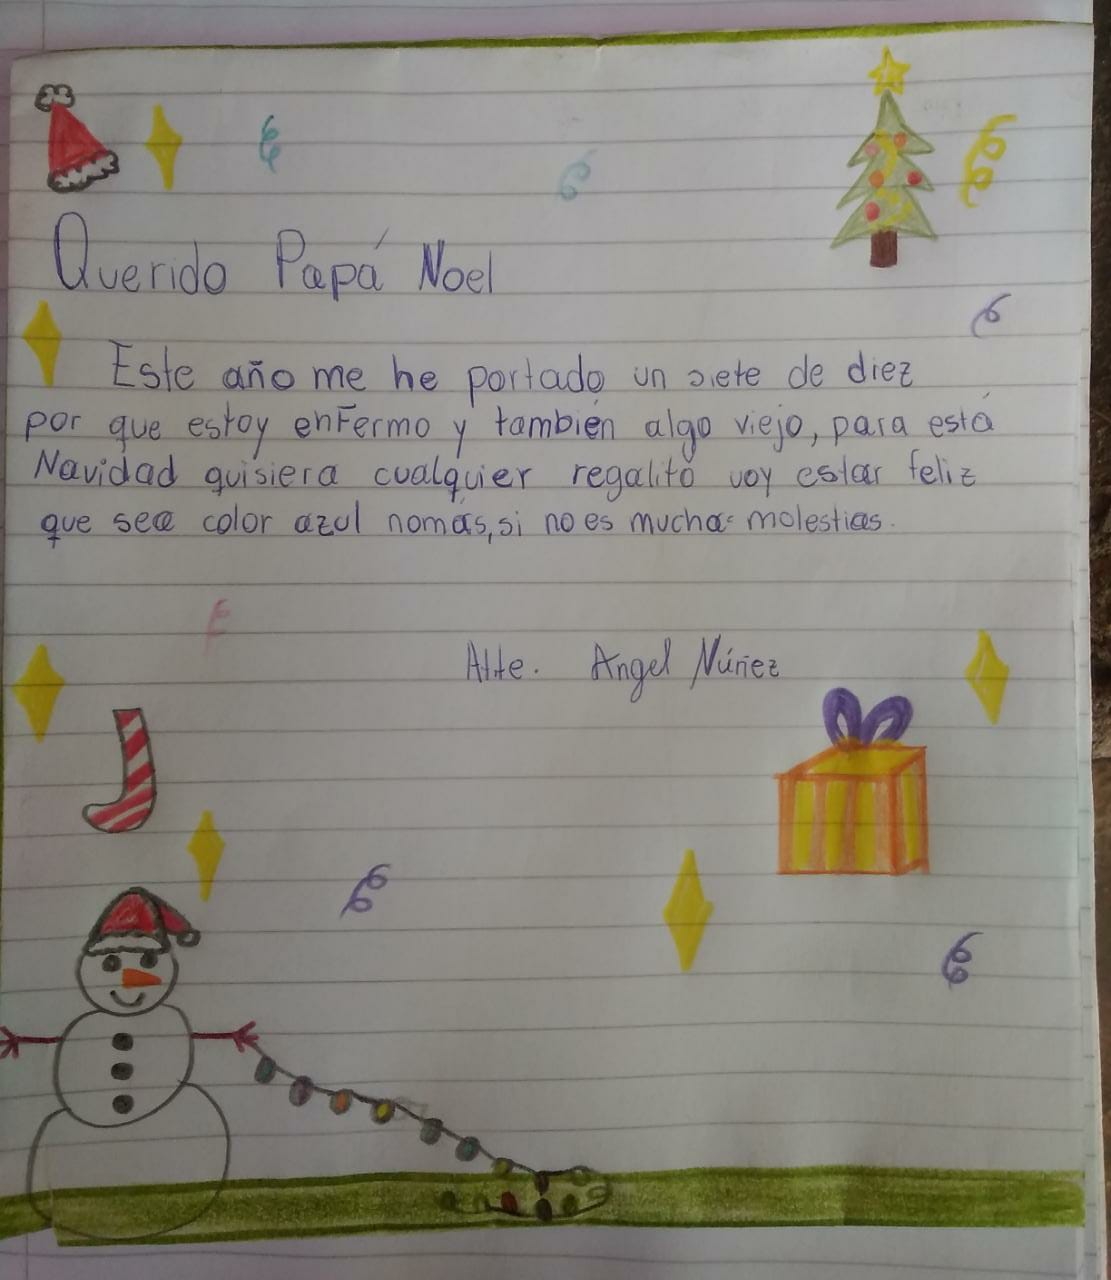 Querido Papá Noel
Este año me he portado un siete de diez
por que estoy enfermo y también algo viejo, para está
Navidad quisiera cualquier regalito voy estar feliz
que sea color azul nomás, si no es muchas molestias.
Atte. Angel Núñez